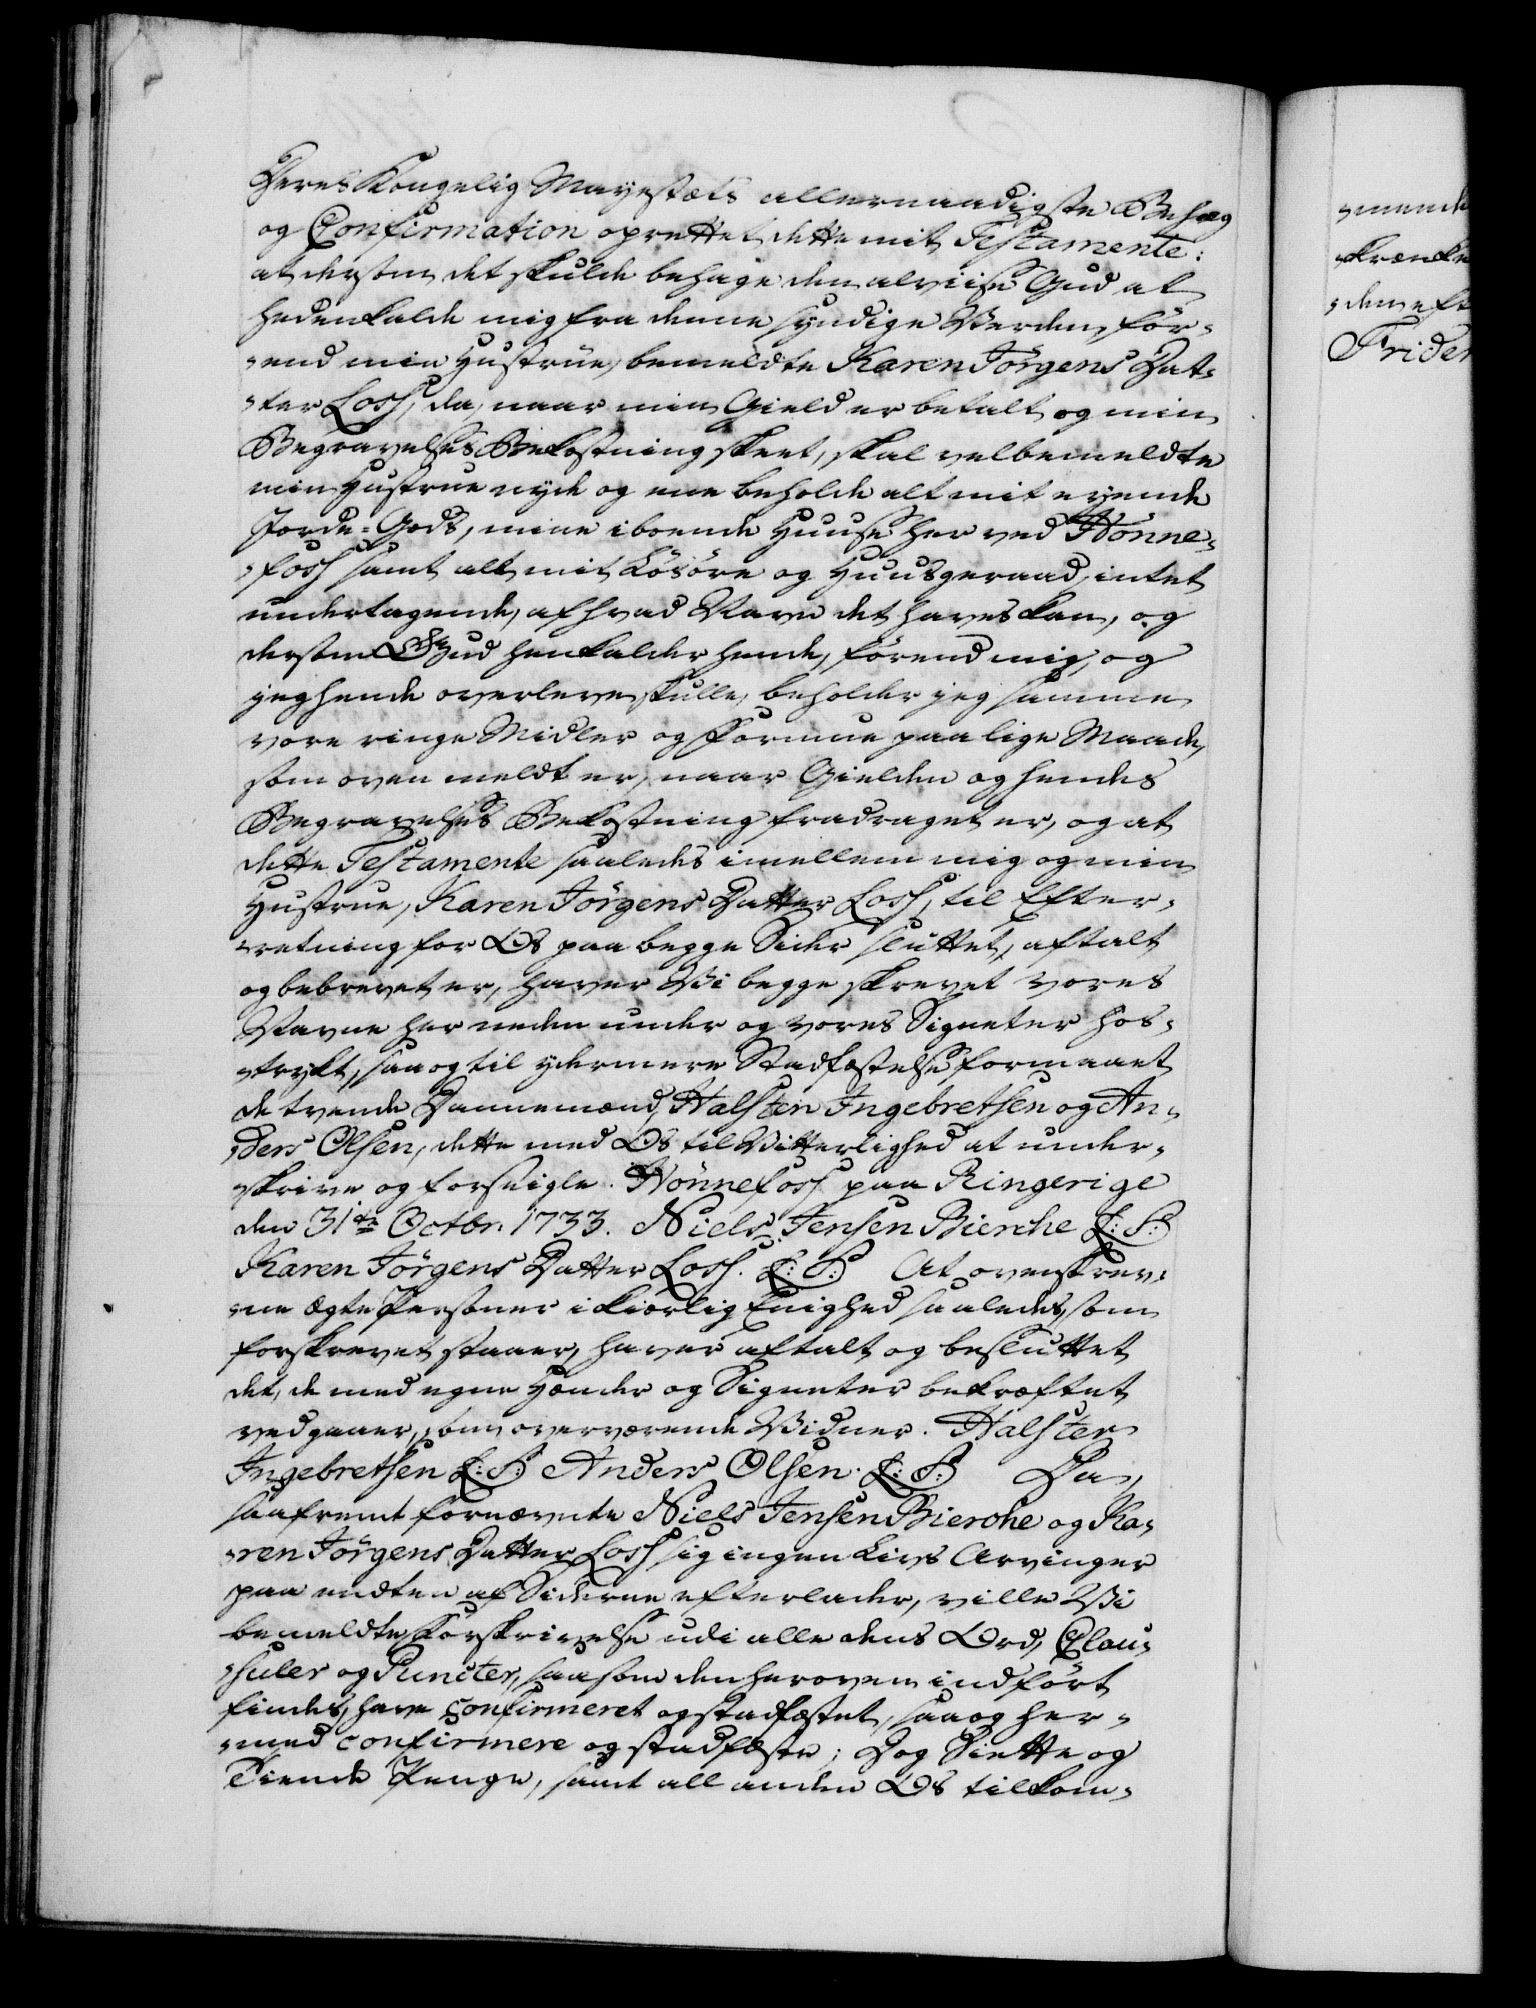 Deres Kongelig Mayestæts allernaadigste Behag
og Confirmation oprettet dette mit Testamente:
at dersom det skulde behage den alviise Gud at
hedenkalde mig fra denne syndige Verden, för-
-end min Hustrue, bemeldte Karen Jörgens Dat-
-ter Loss, da, naar min Gield er betalt og min
Begravelses Bekostning skeet, skal velbemeldte
min Hustrue nyde og ene beholde alt mit eyende
Jorde-Gods, mine iboende Huuse her ved Hönne-
-foss samt alt mit Lösöre og Huusgeraad, intet
undertagende, af hvad Navn det haves kan, og
dersom Gud henkalder hende, förend mig, og
jeg hende overleve skulle, beholder jeg samme
vore ringe Midler og Formue paa lige Maade,
som oven meldt er, naar Gielden og hendes
Begravelses Bekostning fradraget er, og at
dette Testamente saaledes imellem mig og min
Hustrue, Karen Jörgens Datter Loss, til Efter-
-retning for Os paa begge Sider sluttet, aftalt
og bebrevet er, haver Vi begge skrevet vores
Navne her neden under og vores Signeter hos-
-trykt, saa og til ydermere Stadfæstelse formaaet
de tvende Dannemænd, Halsten Ingebretsen og An-
-ders Olsen, dette med Os til Vitterlighed at under-
-skrive og forseigle. Hönnefoss paa Ringerige
den 31te Octbr. 1733. Niels Jensen Bierche L: S:
Karen Jörgens Datter Loss. L: S: At ovenskrev-
-ne Ægte Persöner i kiærlig Enighed saaledes, som
forskrevet staaer, haver aftalt og besluttet
det, de med egne Hænder og Signeter bekræftet
vedgaaer, som overværende Vidner. Halsten
Ingebretsen L: S: Anders Olsen. L: S: Da,
saafremt fornævnte Niels Jensen Bierche og Ka-
-ren Jörgens Datter Loss sig ingen Livs Arvinger
paa nogen af Siderne efterlader, ville Vi
bemeldte Forskrivelse udi alle dens Ord, Clau-
-suler og Puncter, saasom den heroven indfört
findes, have confirmeret og stadfæstet, saa og her-
-med confirmere og stadfæste; Dog Siette og
Tiende Penge, samt all anden Os tilkom-
-mende
-krænke
-dem eft
Frider